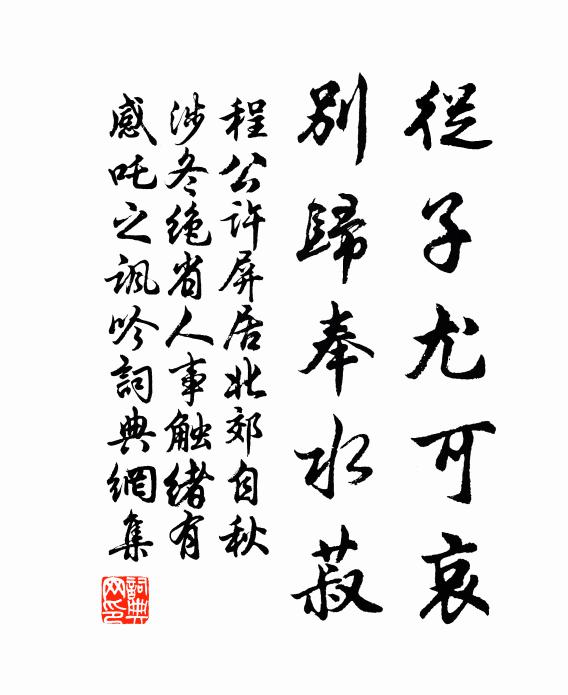 從子尤可哀
別歸奉水菽
程公許屏居北郊自秋
涉冬絶省人事触緒有
感吒之諷吟詞典網集
詞典网印